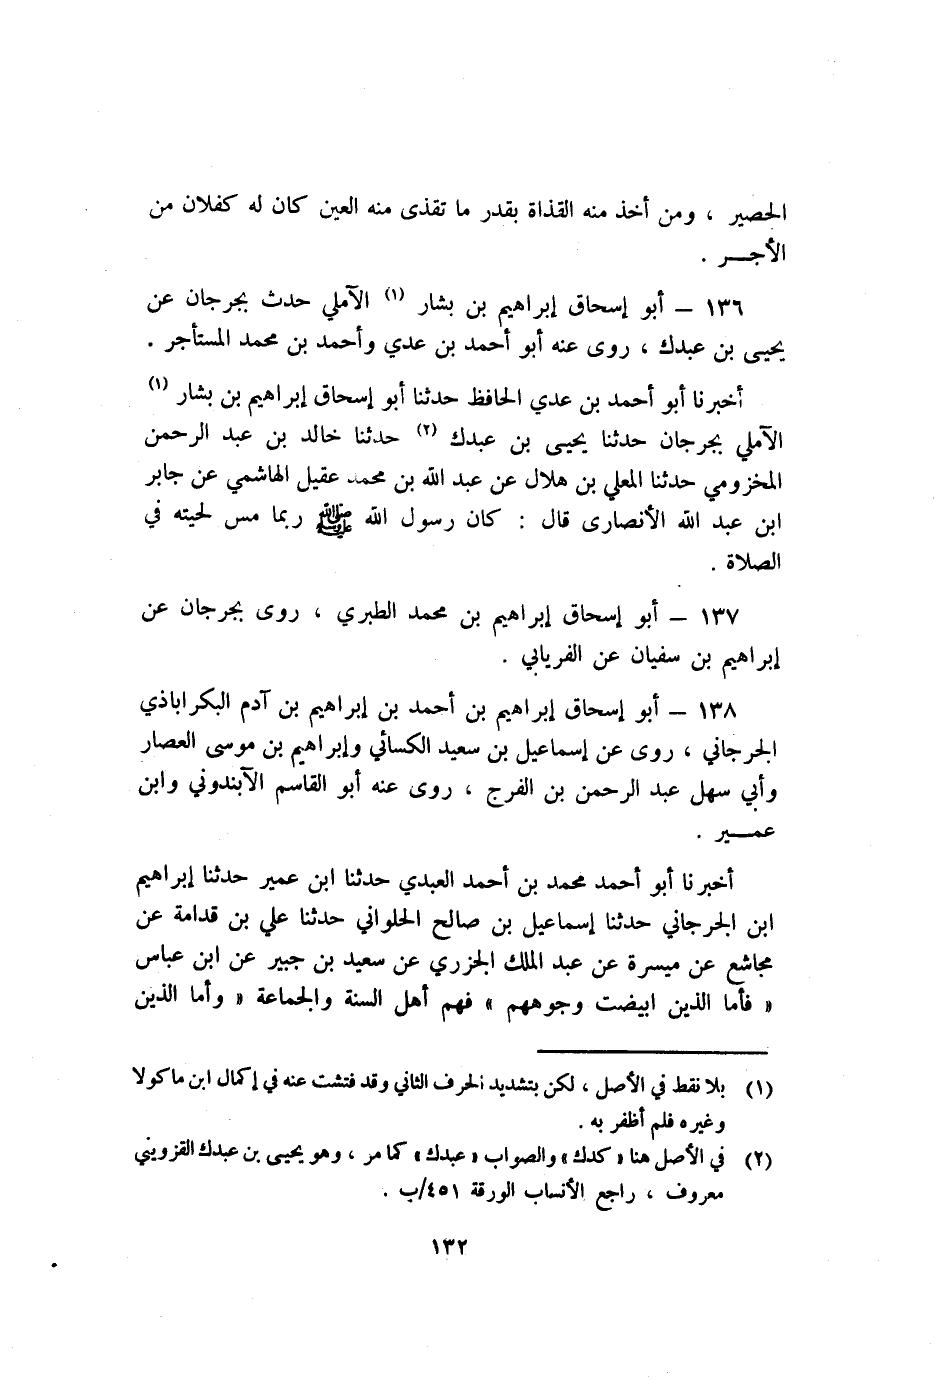 الحصير ، ومن أخذ منه القذاة بقدر ما تقذى منه العين كان له كفلان من
الأجــر .
١٣٦ – أبو إسحاق إبراهيم بن بشار (١) الآملي حدث بجرجان عن
يحيى بن عبدك ، روى عنه أبو أحمد بن عدي وأحمد بن محمد المستأجر .
أخبرنا أبو أحمد بن عدي الحافظ حدثنا أبو إسحاق إبراهيم بن بشار (١)
الآملي بجرجان حدثنا يحيى بن عبدك (٢) حدثنا خالد بن عبد الرحمن
المخزومي حدثنا المعلي بن هلال عن عبد الله بن محمد عقيل الهاشمي عن جابر
ابن عبد الله الأنصارى قال : كان رسول الله ﷺ ربما مس لحيته في
الصلاة .
١٣٧ – أبو إسحاق إبراهيم بن محمد الطبري ، روى بجرجان عن
إبراهيم بن سفيان عن الفريابي .
١٣٨ – أبو إسحاق إبراهيم بن أحمد بن إبراهيم بن آدم البكراباذي
الجرجاني ، روى عن إسماعيل بن سعيد الكسائي وإبراهيم بن موسى العصار
وأبي سهل عبد الرحمن بن الفرج ، روى عنه أبو القاسم الآبندوني وابن
عمــير .
أخبرنا أبو أحمد محمد بن أحمد العبدي حدثنا ابن عمير حدثنا إبراهيم
ابن الجرجاني حدثنا إسماعيل بن صالح الحلواني حدثنا علي بن قدامة عن
مجاشع عن ميسرة عن عبد الملك الجزري عن سعيد بن جبير عن ابن عباس
« فأما الذين ابيضت وجوههم » فهم أهل السنة والجماعة « وأما الذين
(١) بلا نقط في الأصل ، لكن بتشديد الحرف الثاني وقد فتشت عنه في إكمال ابن ماكولا
وغيره فلم أظفر به .
(٢) في الأصل هنا « كدك » والصواب « عبدك » كما مر ، وهو يحيى بن عبدك القزويني
معروف ، راجع الأنساب الورقة ٤٥١/ب .
١٣٢